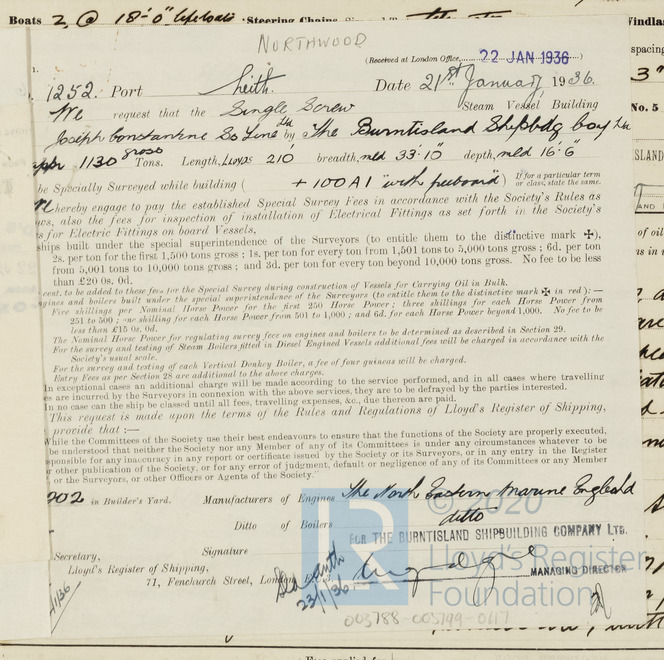 Boats 2 @ 18'-0" lifeboats Steering Chains,
NORTHWOOD
(Received at London Office, 22 JAN 1936
1252. Port Leith. Date 21st January, 1936.
We request that the Single Screw Steam Vessel Building
Joseph Constantine SS Line Ltd by The Burntisland Shipbdg Coy Ltd
appr 1130 gross Tons. Length, Lloyds 210' breadth, mld 33'·10" depth, mld 16'·6"
be Specially Surveyed while building ( + 100A1 "with freeboard") If for a particular term or class, state the same.
We hereby engage to pay the established Special Survey Fees in accordance with the Society's Rules as
ws, also the fees for inspection of installation of Electrical Fittings as set forth in the Society's
s for Electric Fittings on board Vessels.
ships built under the special superintendence of the Surveyors (to entitle them to the distinctive mark ✠),
2s. per ton for the first 1,500 tons gross; 1s. per ton for every ton from 1,501 tons to 5,000 tons gross; 6d. per ton
from 5,001 tons to 10,000 tons gross; and 3d. per ton for every ton beyond 10,000 tons gross. No fee to be less
than £20 0s. 0d.
cent. to be added to these fees for the Special Survey during construction of Vessels for Carrying Oil in Bulk.
gines and boilers built under the special superintendence of the Surveyors (to entitle them to the distinctive mark ✠ in red):—
Five shillings per Nominal Horse Power for the first 250 Horse Power; three shillings for each Horse Power from
251 to 500; one shilling for each Horse Power from 501 to 1,000; and 6d. for each Horse Power beyond 1,000. No fee to be
less than £15 0s. 0d.
The Nominal Horse Power for regulating survey fee on engines and boilers to be determined as described in Section 29.
For the survey and testing of Steam Boilers fitted in Diesel Engined Vessels additional fees will be charged in accordance with the
Society's usual scale.
For the survey and testing of each Vertical Donkey Boiler, a fee of four guineas will be charged.
Entry Fees as per Section 28 are additional to the above charges.
In exceptional cases an additional charge will be made according to the service performed, and in all cases where travelling
es are incurred by the Surveyors in connexion with the above services, they are to be defrayed by the parties interested.
In no case can the ship be classed until all fees, travelling expenses, &c., due thereon are paid.
This request is made upon the terms of the Rules and Regulations of Lloyd's Register of Shipping,
provide that :—
While the Committees of the Society use their best endeavours to ensure that the functions of the Society are properly executed,
be understood that neither the Society nor any Member of any of its Committees is under any circumstances whatever to be
sponsible for any inaccuracy in any report or certificate issued by the Society or its Surveyors, or in any entry in the Register
r other publication of the Society, or for any error of judgment, default or negligence of any of its Committees or any Member
or the Surveyors, or other Officers or Agents of the Society."
202 in Builder's Yard. Manufacturers of Engines The North Eastern Marine Eng Co Ld
Ditto of Boilers ditto
FOR THE BURNTISLAND SHIPBUILDING COMPANY LTD.
Signature
MANAGING DIRECTOR
Secretary,
Lloyd's Register of Shipping,
71, Fenchurch Street, London
23/1/36
003788-005799-0117
© 2020
Lloyd's Register
Foundation
Windlas
spacing
3"
No. 5